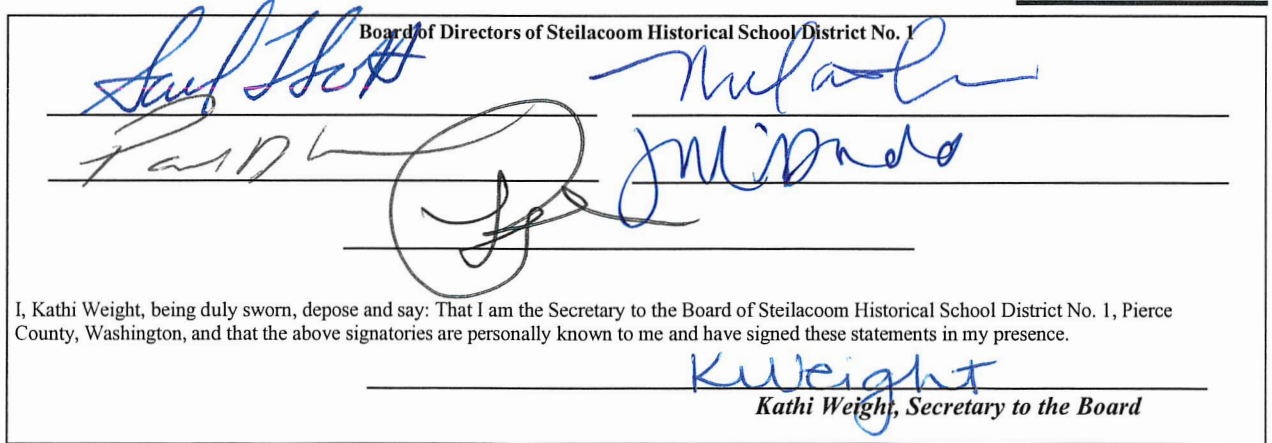 Board of Directors of Steilacoom Historical School District No. 1
I, Kathi Weight, being duly sworn, depose and say: That I am the Secretary to the Board of Steilacoom Historical School District No. 1, Pierce
County, Washington, and that the above signatories are personally known to me and have signed these statements in my presence.
KWeight
Kathi Weight, Secretary to the Board